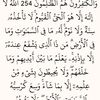 وَٱلْكَٰفِرُونَ هُمُ ٱلظَّٰلِمُونَ 254 ٱللَّهُ لَآ
إِلَٰهَ إِلَّا هُوَ ٱلْحَىُّ ٱلْقَيُّومُ لَا تَأْخُذُهُۥ
سِنَةٌ وَلَا نَوْمٌ لَّهُۥ مَا فِى ٱلسَّمَٰوَٰتِ وَمَا
فِى ٱلْأَرْضِ مَن ذَا ٱلَّذِى يَشْفَعُ عِندَهُۥٓ
إِلَّا بِإِذْنِهِۦ يَعْلَمُ مَا بَيْنَ أَيْدِيهِمْ وَمَا
خَلْفَهُمْ وَلَا يُحِيطُونَ بِشَىْءٍ مِّنْ
عِلْمِهِۦٓ إِلَّا بِمَا شَآءَ وَسِعَ كُرْسِيُّهُ